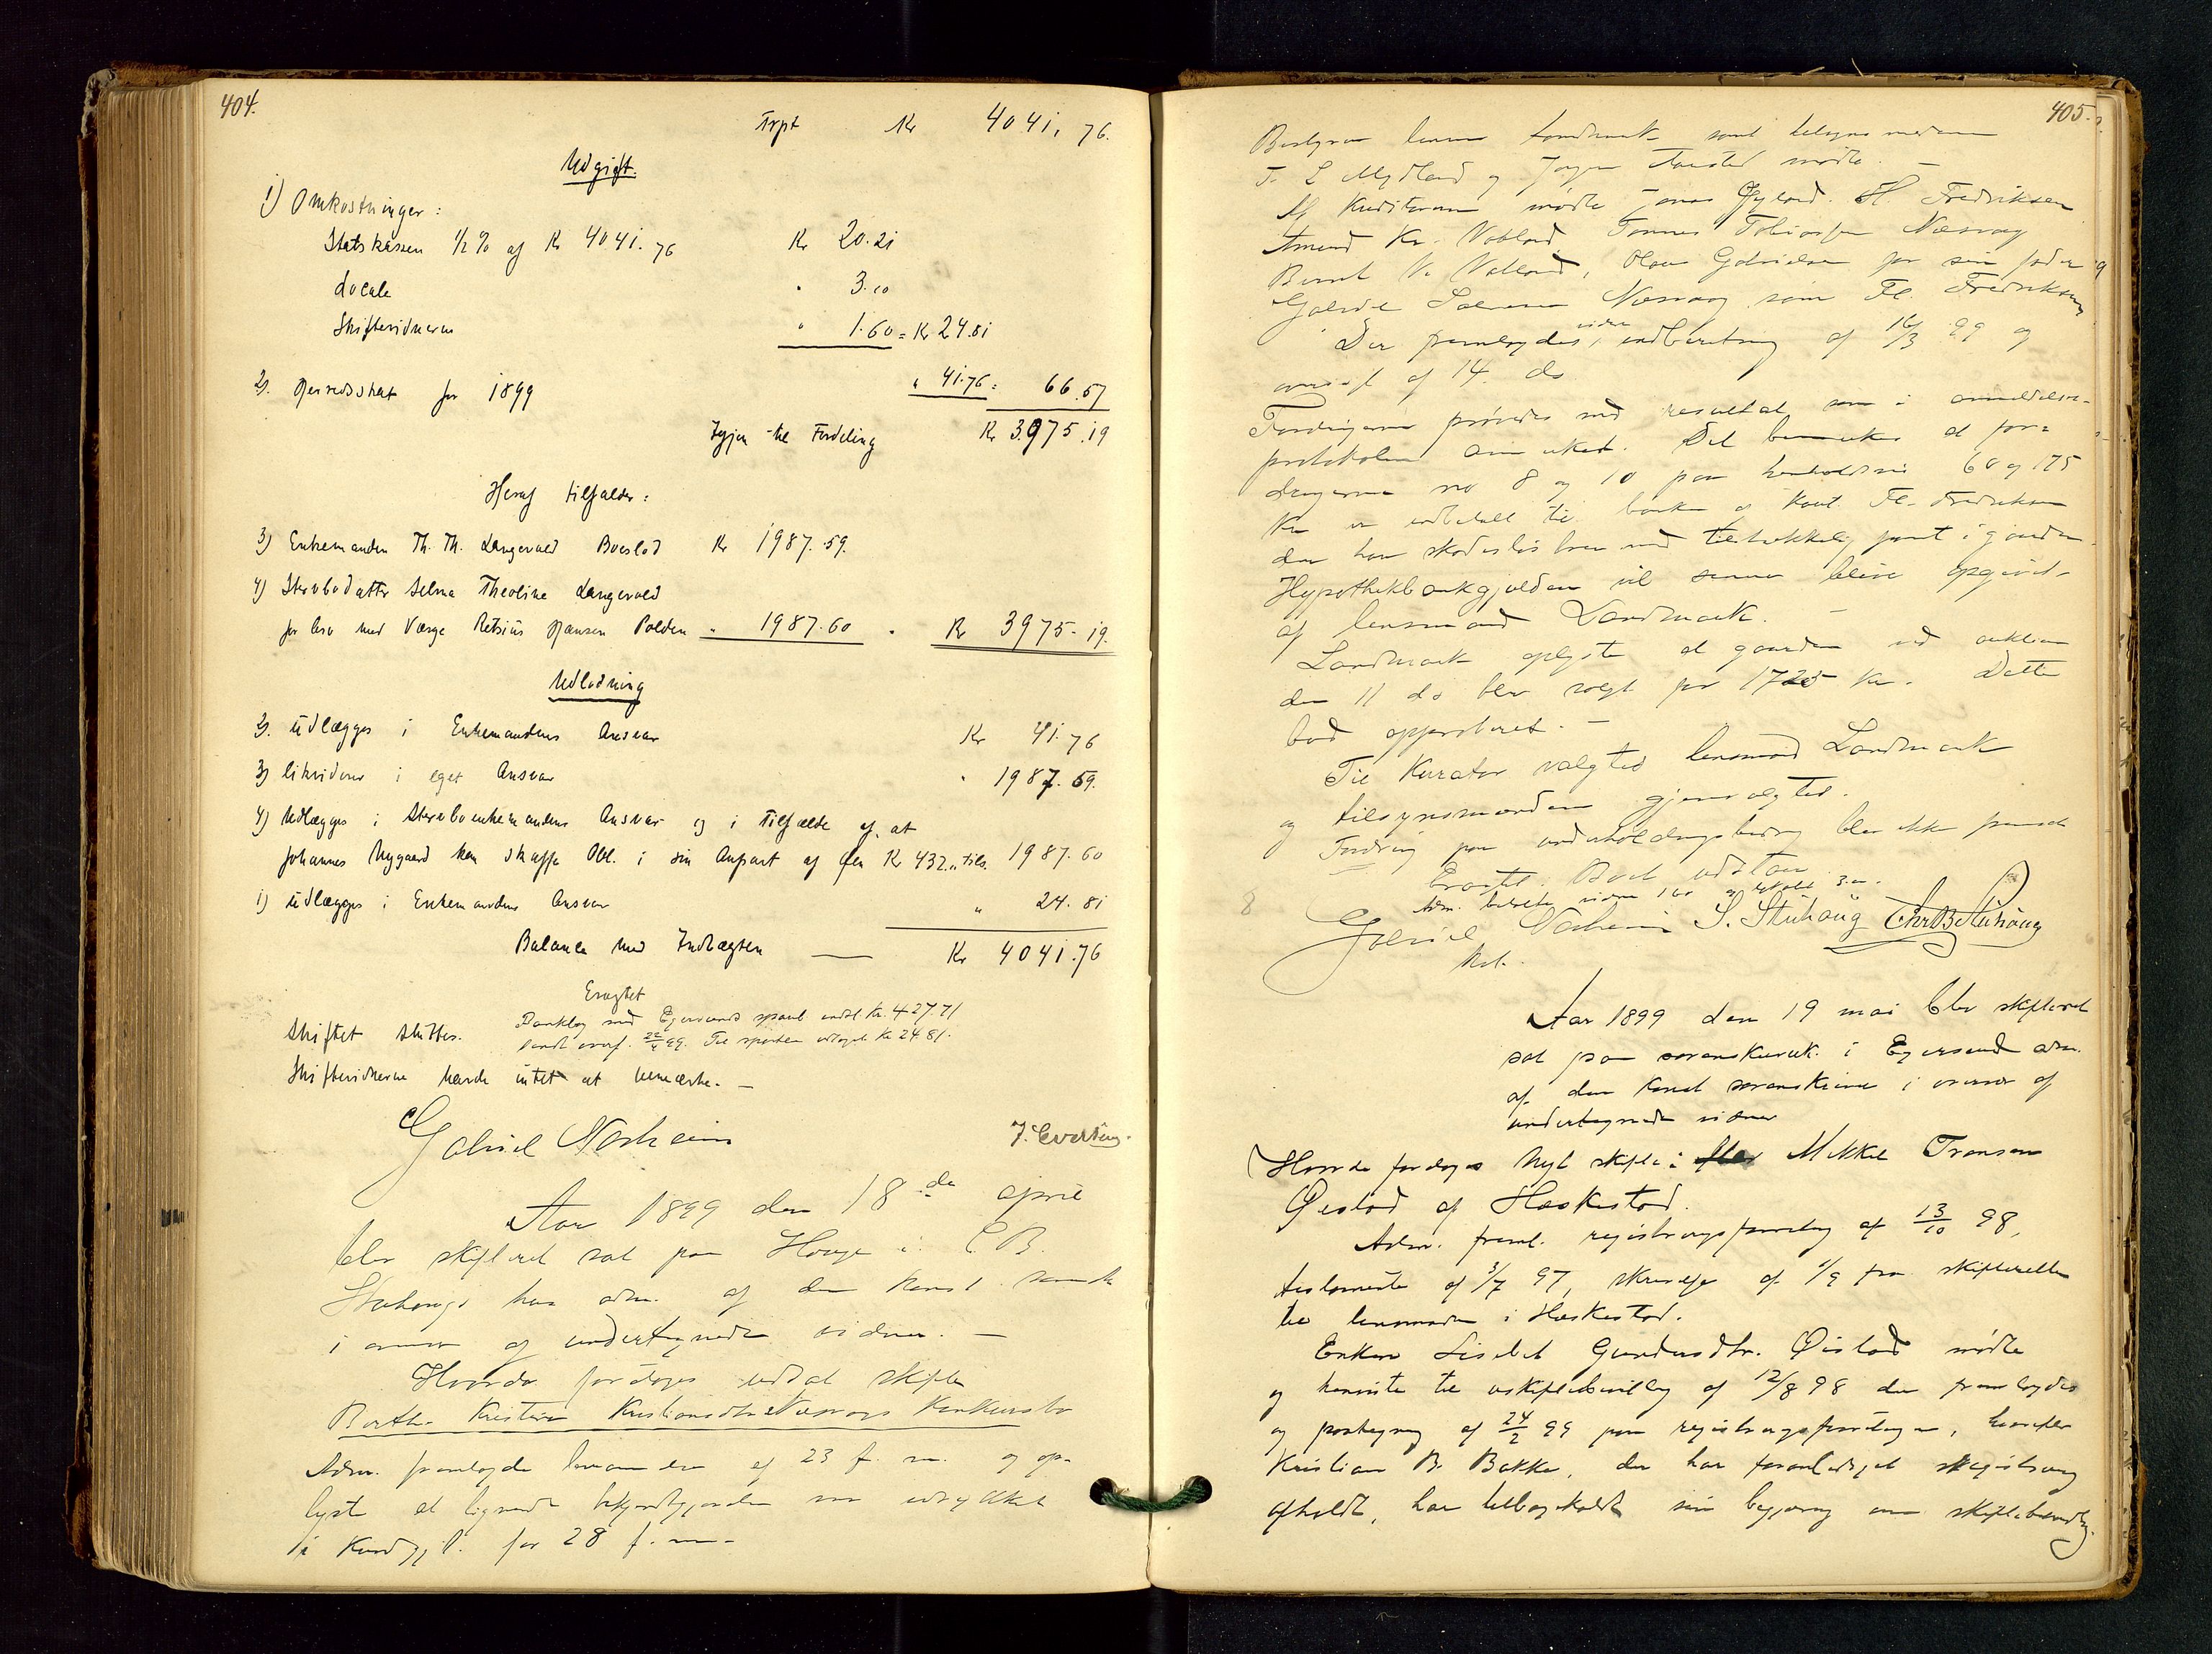 404.
Trpt Kr 4041,76.
Udgift.
1) Omkostninger:
Statskassen 1/2 % af Kr 4041.76 Kr 20.21
Locale " 3.00
Skiftevidnerne " 1.60 = Kr 24.81
2). Herredsskat for 1899 " 41.76 = 66.57
Igjen til Fordeling Kr 3975.19
Heraf tilfalder:
3) Enkemanden Th. Th. Langevad Boeslod Kr 1987.59.
4) Sterbodatter Selma Theoline Langevad
for hvo med Værge Retsius Hansen Polden " 1987.60 " Kr 3975.19.
Udlodning
2). Udlægges i Enkemandens Ansvar Kr 41.76
3) likviderer i eget Ansvar " 1987.59.
4) Udlægges i Sterboenkemandens Ansvar og i Tilfælde af, at
Johannes Nygaard kan skaffe Obl. i sin Anpart af den Kr 432,, tils. 1987.60
1) Udlægges i Enkemandens Ansvar " 24.81
Balance med Indtægten — Kr 4041.76
Eragtet
Skiftet sluttes.
Bankbog med Egersunds spareb. indst Kr. 427.71
sendt overf. 22/4 99. Til sportler udtaget Kr 24.81.
Skiftevidnerne havde intet at bemærke. —
Gabriel Nesheim J. Evertsen.
Aar 1899 den 18de april
blev skifteret sat paa Hauge i C. B.
Stuhaugs hus adm. af den konst. sorensk.
i overvær af undertegnede vidner. —
Hvorda foretoges udsat skifte
Berthe Kristine Kristiansdtr Næsvags Konkursbo
Adm. fremlagde
af 23 f. m. og op-
lyste at lignende bekjendtgjørelse var indrykket
i Kundgj.t. for 28 f. m.
405.
Bestyrer lensm. Landmark samt tilsynsmedene
T. L. Mydland og Jørgen Aarstad mødte. —
Af Kreditorerne mødte Jonas Øgland. Fl. Fredriksen
Amund Kr. Vatland Tønnes Tobiassen Næsvag
Bernt V. Vatland, Olaus Gabrielsen for sin fader
Gabriel Salvesen Næsvag som Fl. Fredriksen
Der fremlagdes videre indberetning af 16/3 99 og
oversigt af 14. ds
Fordringerne prøvedes med resultat, som i anmeldelses-
protokolen anmerket. Det bemerkes at for-
dringerne no 8 og 10 paa henholdsvis 60 og 175
Kr er indbetalt til banken af kaut. Fl. Fredriksen
der har skadesløsbrev med tilstrækkelig pant i gaarden.
Hypothekbankgjælden vil senere blive opgivet
af lensmand Landmark. —
Landmark oplyste at gaarden ved auktion
den 11 ds blev solgt for 1725 Kr. Dette
bud approberet. —
Til Kurator valgtes lensmand Landmark
og tilsynsmændene gjenvalgtes.
Fordring paa underholdningsbidrag blev ikke fremsat
Eragtet: Boet udstaar.
Adm. betalte vidner 1.60 og lokale 3.00.
Gabriel Nesheim S. Stuhaug Chr B Stuhaug
Aar 1899 den 19 mai blev skifteret
sat paa sorenskriverk. i Egersund adm.
af den konst sorenskriver i overvær af
undertegnede vidner
Hvorda foretoges Nyt skifte i Mikkel Tronsen
Øislad af Heskestad.
Adm. freml. registreringsforretning af 13/10 98,
testamente af 3/7 97, skrivelse af 1/9 fra skifteretten
til lensmanden i Heskestad.
Enken Lisebet Gundersdtr. Øislad mødte
og henviste til uskiftebevilling af 12/8 98 der fremlagdes
og paategning af 24/2 99 paa registreringsforretningen, hvorefter
Kristian B. Bakke, der har foranlediget registrering
afholdt, har tilbagekaldt sin begjæring om skiftebehandling.